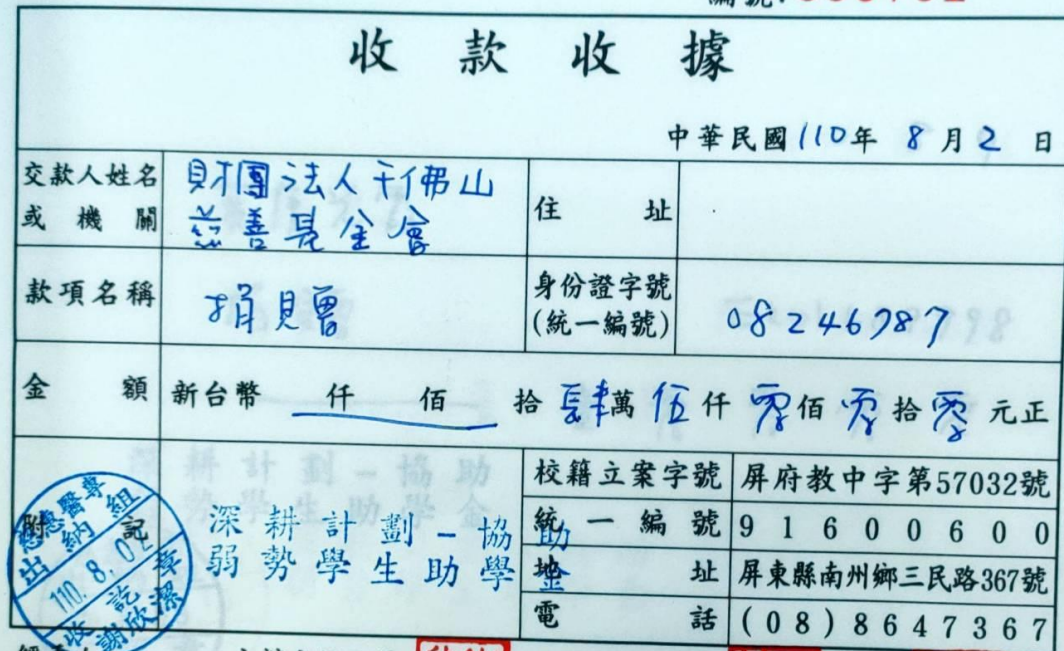 編號:
收款收據
中華民國110年 8月2日
交款人姓名或機關 財團法人千佛山慈善基金會 住址
款項名稱 捐贈 身份證字號(統一編號) 08246787
金額 新台幣 仟 佰 拾肆萬伍仟零佰零拾零元正
附記
深耕計劃-協助
弱勢學生助學金
校籍立案字號 屏府教中字第57032號
統一編號 91600600
地址 屏東縣南州鄉三民路367號
電話 (08)8647367
慈惠醫專
出納組
110.8.02
收訖章
謝欣潔